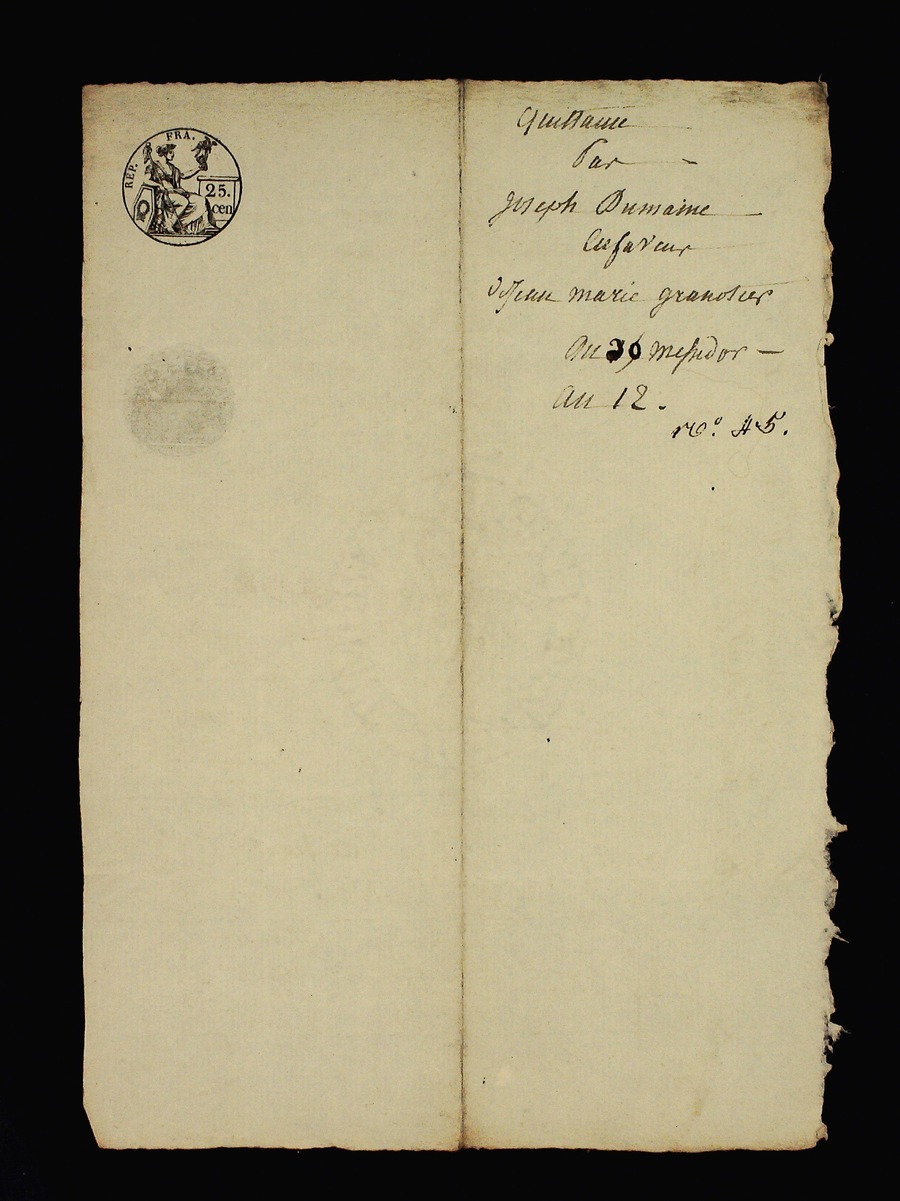 REP. FRA.
25.
cen
Quittance
Par
Joseph Dumaine
En faveur
Jean marie granotier
Du messidor
an 12.
no. 45.